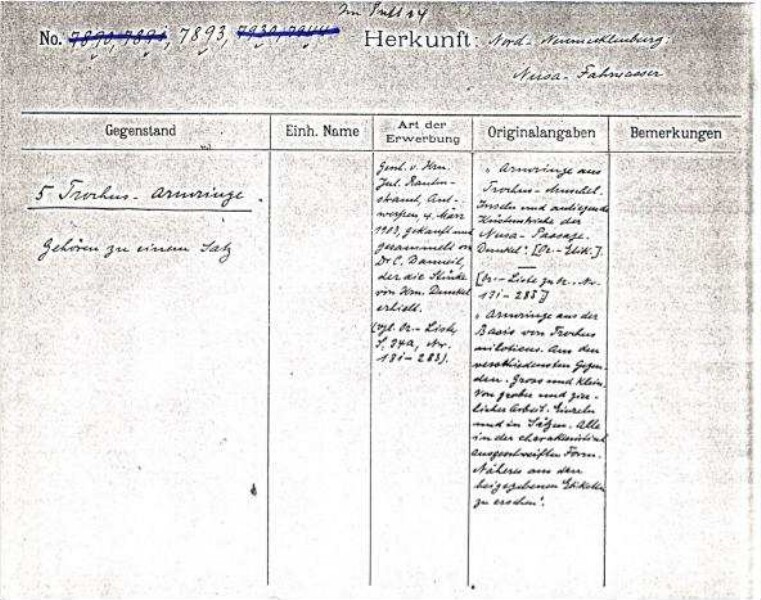 Im Pult 24
No. 7890, 7891, 7893, 7930, 7944 Herkunft: Nord-Neumecklenburg:
Nusa-Fahrwasser
Gegenstand
Einh. Name
Art der
Erwerbung
Originalangaben
Bemerkungen
5 Trochus-Armringe.
Gehören zu einem Satz
Gesch. v. Hrn.
Jul. Rauten-
strauch, Ant-
werpen, 4. März
1903, gekauft und
gesammelt von
Dr C. Danneil,
der die Stücke
von Hrn. Dunkel
erhielt.
(vgl. Or.-Liste,
S. 24a, Nr.
18i-283).
„Armringe aus
Trochus-Muschel.
Inseln und anliegende
Küstenstriche der
Nusa-Passage.
Dunkel". [Or.-Etik.].
[Or.-Liste zu Or. Nr.
13i-283]
„Armringe aus der
Basis von Trochus
niloticus. Aus den
verschiedensten Gegen-
den. Gross und klein.
Von grober und zier-
licher Arbeit. Einzeln
und in Sätzen. Alle
in der charakteristisch
ausgeschweiften Form.
Näheres aus den
beigegebenen Etiketten
zu ersehen".